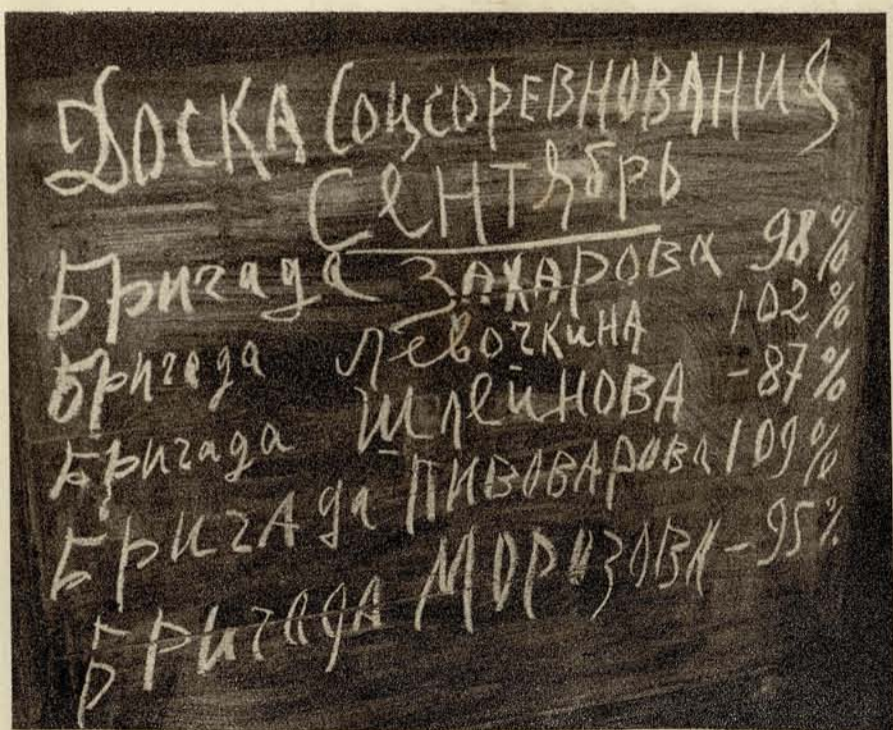 Доска Соцсоревнования
Сентябрь
Бригада Захарова 98%
Бригада Левочкина 102%
Бригада Шлейнова - 87%
Бригада Пивоварова 109%
Бригада Морозова - 95%